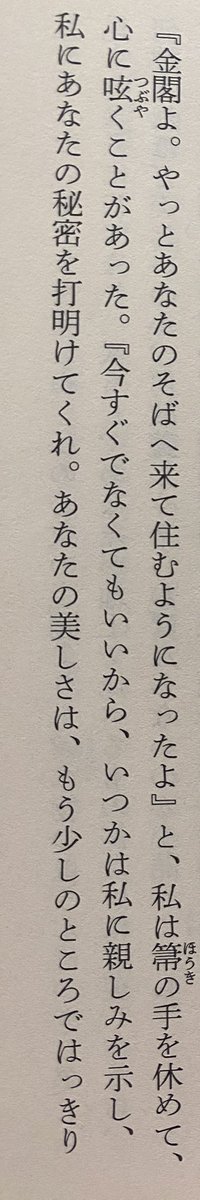 『金閣よ。やっとあなたのそばへ来て住むようになったよ』と、私は箒の手を休めて、
心に呟くことがあった。『今すぐでなくてもいいから、いつかは私に親しみを示し、
私にあなたの秘密を打明けてくれ。あなたの美しさは、もう少しのところではっきり